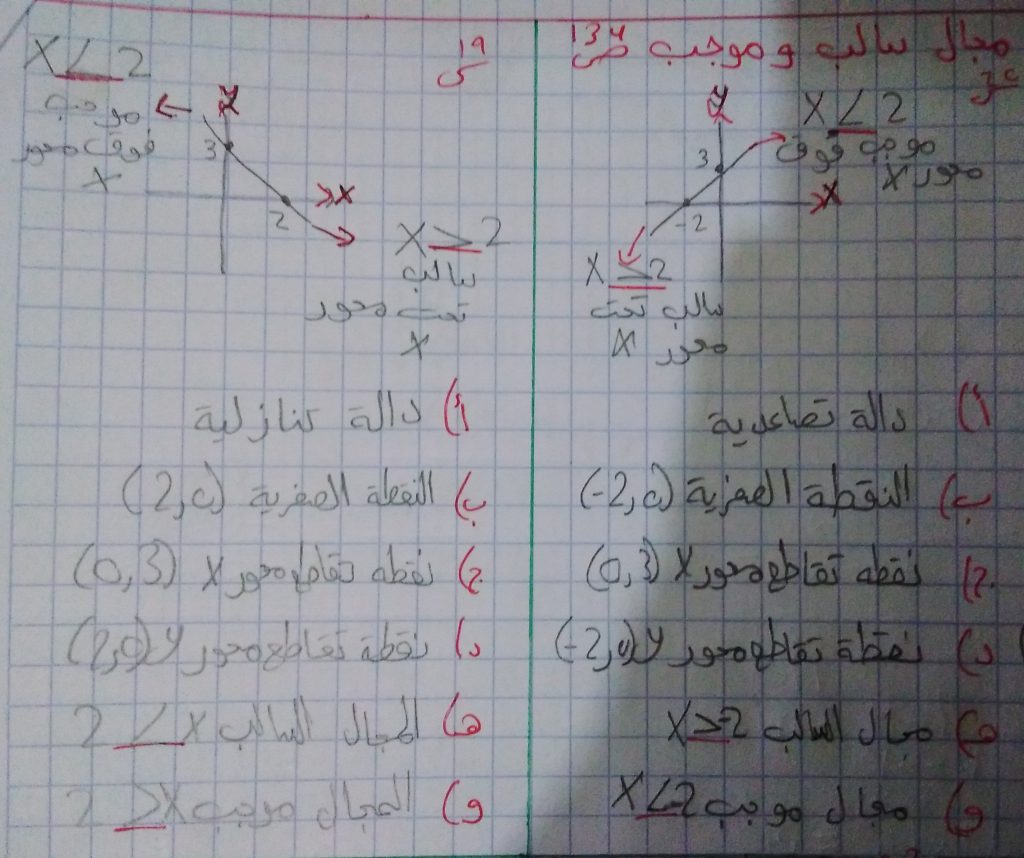 مجال سالب و موجب ص 134
X < 2
موجب فوق
محور X
Y
3
X
-2
سالب تحت
محور X
أ) دالة تصاعدية
ب) النقطة الصفرية (-2,0)
ج) نقطة تقاطع محور X (0,3)
د) نقطة تقاطع محور y (-2,0)
ه) مجال السالب X>-2
و) مجال موجب X<-2
س 19
X < 2
موجب
فوق محور
X
Y
3
X
2
X > 2
سالب
تحت محور
X
أ) دالة تنازلية
ب) النقطة الصفرية (2,0)
ج) نقطة تقاطع محور X (0,3)
د) نقطة تقاطع محور y (2,0)
ه) المجال السالب 2 < X
و) المجال موجب 2 > X